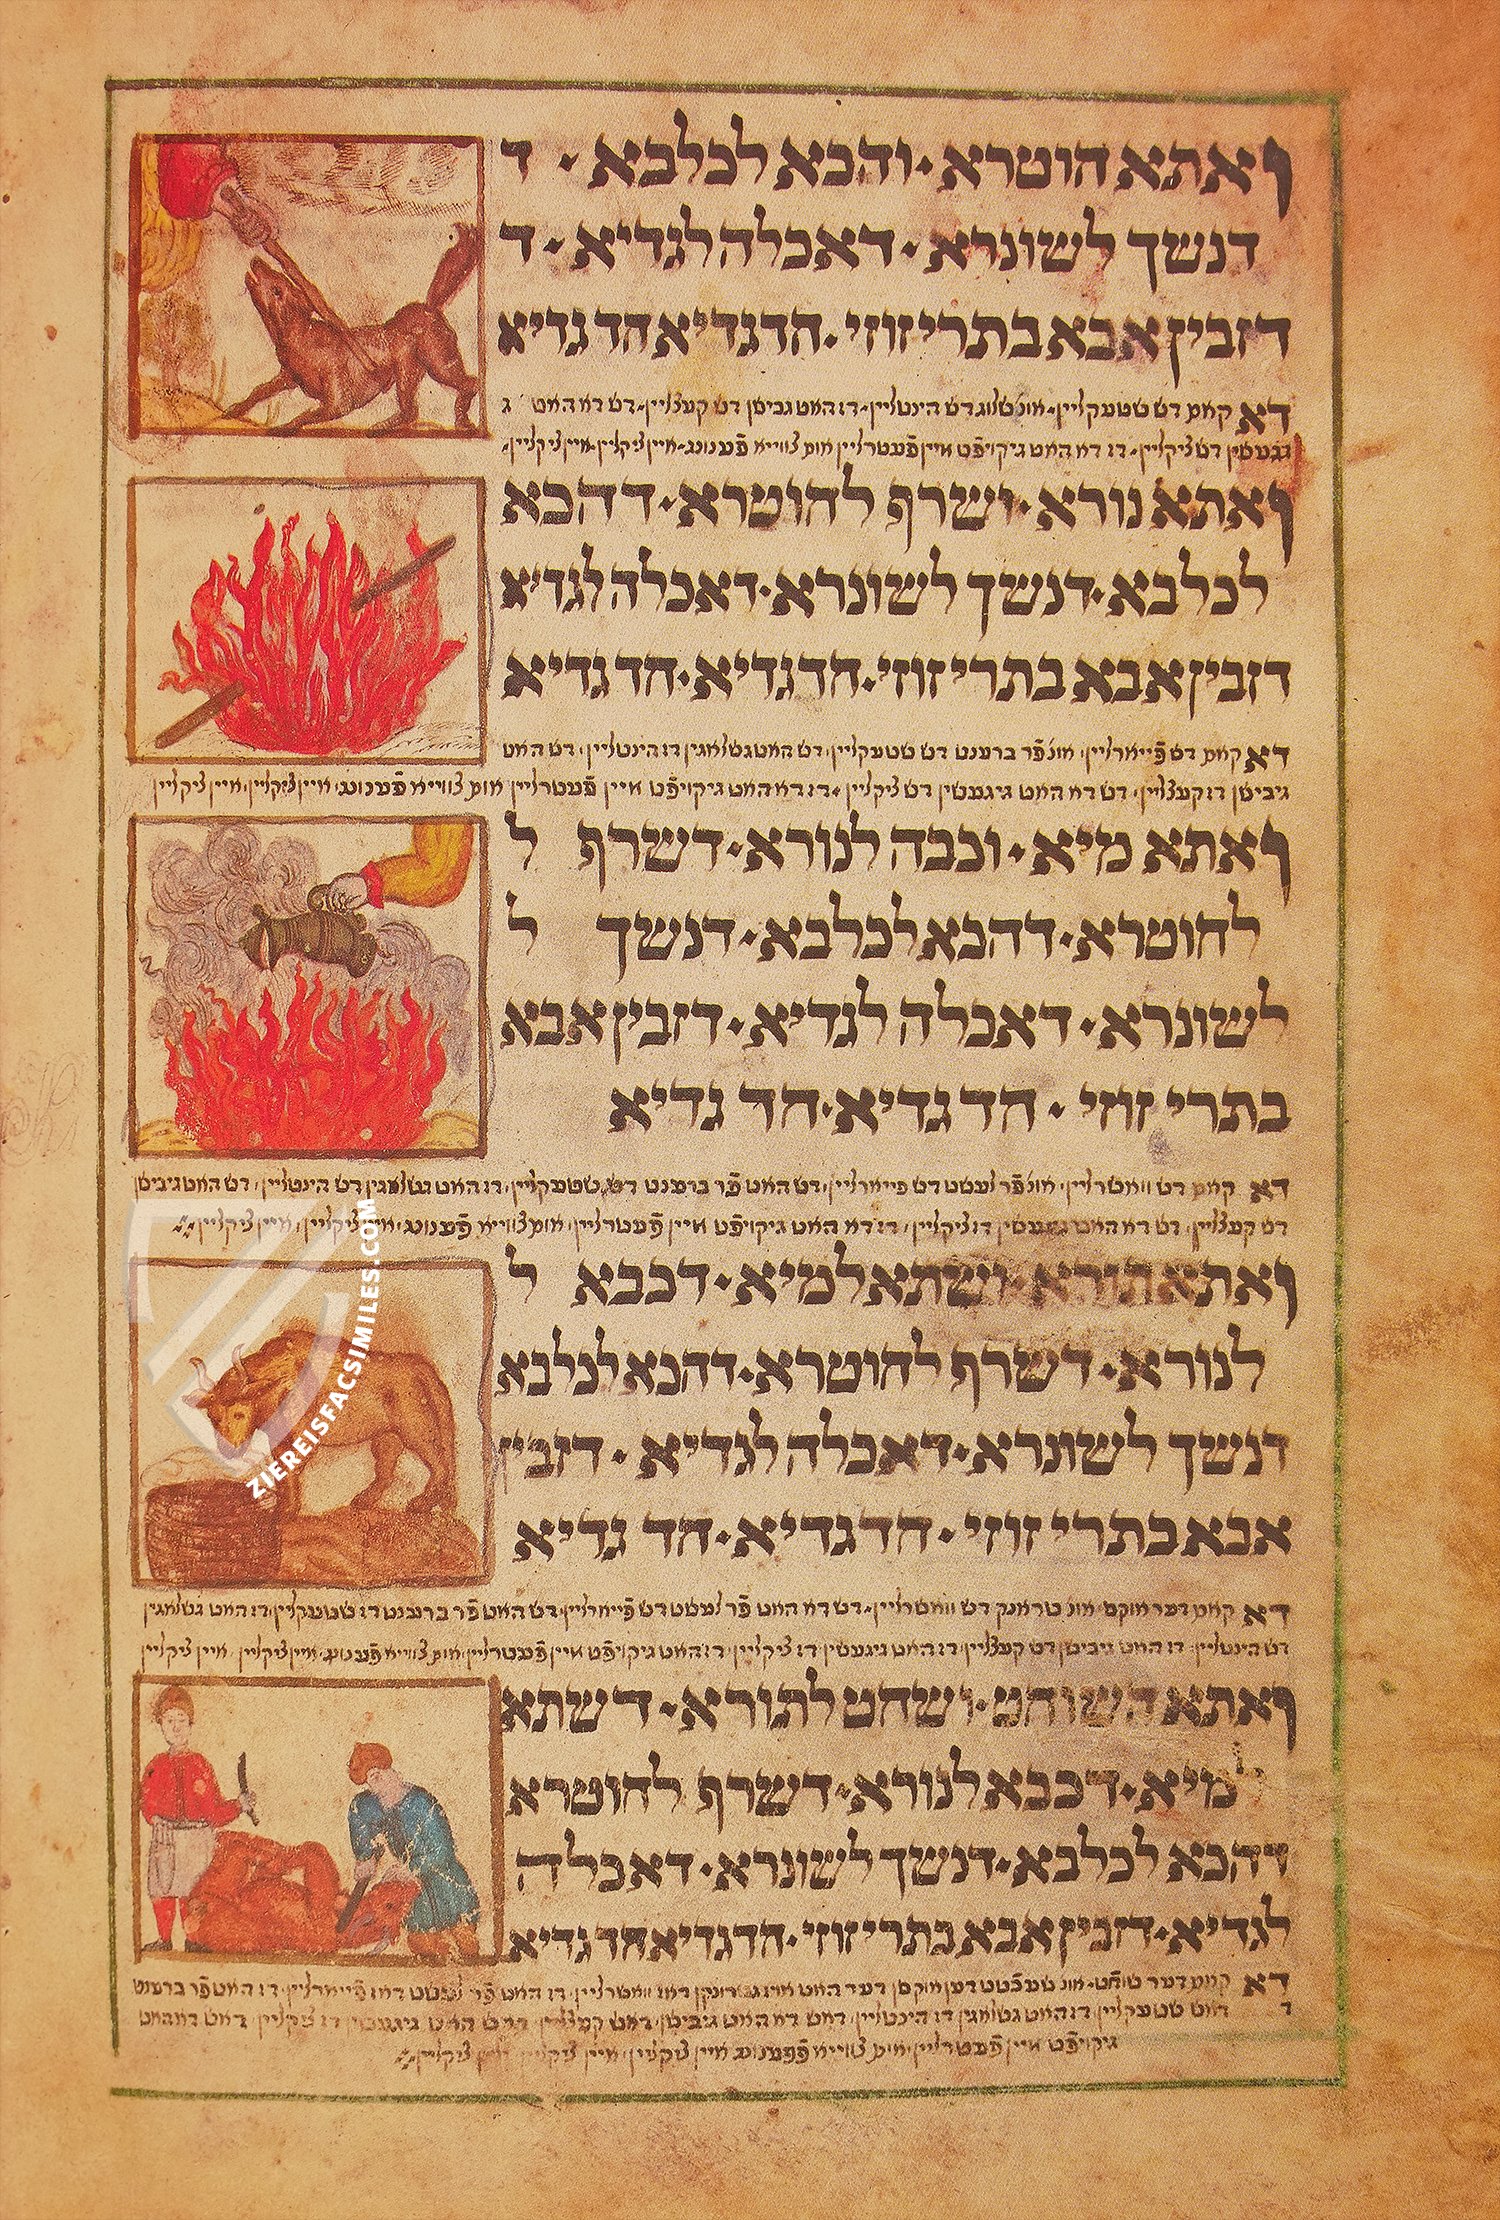 ואתא חוטרא · והכא לכלבא · ד
דנשך לשונרא · דאכלה לגדיא · ד
דזבין אבא בתרי זוזי · חד גדיא חד גדיא
דא קאם דש שטעקליין · אונ' שלוג דש הינטליין · דז האט גביסן דש קעצליין · דש דא האט ג
געסין דש ציקליין · דז דא האט גיקויפֿט איין פֿעטרליין אום צווייא פֿענונג · איין ציקליין · איין ציקליין ·
ואתא נורא · ושרף לחוטרא · דהכא
לכלבא · דנשך לשונרא · דאכלה לגדיא
דזבין אבא בתרי זוזי · חד גדיא · חד גדיא
דא קאם דש פֿייארליין · אונ' פֿר ברענט דש שטעקליין · דש האט גשלאגין דז הינטליין · דש האט
גיביסן דז קעצליין · דש דא האט גיגעסין דש ציקליין · דז דא האט גיקויפֿט איין פֿעטרליין אום צווייא פֿענונג · איין ציקליין · איין ציקליין
ואתא מיא · וכבה לנורא · דשרף ל
לחוטרא · דהכא לכלבא · דנשך ל
לשונרא · דאכלה לגדיא · דזבין אבא
בתרי זוזי · חד גדיא · חד גדיא
דא קאם דש וואשרליין · אונ' פֿר לעשט דש פייארליין · דש האט פֿר ברענט דש שטעקליין · דז האט גשלאגין דש הינטליין · דש האט גיביסן
דש קעצליין · דש דא האט געסין דז ציקליין · דז דא האט גיקויפֿט איין פֿעטרליין · אום צווייא פֿענונג · איין ציקליין · איין ציקליין
ואתא תורא · ושתא למיא · דכבא ל
לנורא · דשרף לחוטרא · דהכא לכלבא
דנשך לשונרא · דאכלה לגדיא · דזבין
אבא בתרי זוזי · חד גדיא · חד גדיא
דא קאם דער אוקס · אונ' טראנק דש וואשרליין · דש דא האט פֿר לעשט דש פֿייארליין · דש האט פֿר ברענט דז שטעקליין · דז האט גשלאגין
דש הינטליין · דז האט גיביסן דש קעצליין · דז האט גיגעסין דז ציקליין · דז האט גיקויפֿט איין פֿעטרליין · אום צווייא פֿענונג · איין ציקליין · איין ציקליין
ואתא השוחט · ושחט לתורא · דשתא
למיא · דכבא לנורא · דשרף לחוטרא
דהכא לכלבא · דנשך לשונרא · דאכלה
לגדיא · דזבין אבא בתרי זוזי · חד גדיא חד גדיא
דא קאם דער שוחט · אונ' דען אוקסן דער האט וואשרליין · דז האט פֿר לעשט פֿייארליין · דז האט פֿר ברענט
ד דאש שטעקליין · דז האט גשלאגין דז הינטליין · דאש דא האט גיביסן · דאש קעצליין · דאש האט גיגעסין דז ציקליין · דאש דא האט
גיקויפֿט איין פֿעטרליין · אום צווייא פֿפֿענונג איין ציקליין · איין ציקליין
ZIEREISFACSIMILES.COM